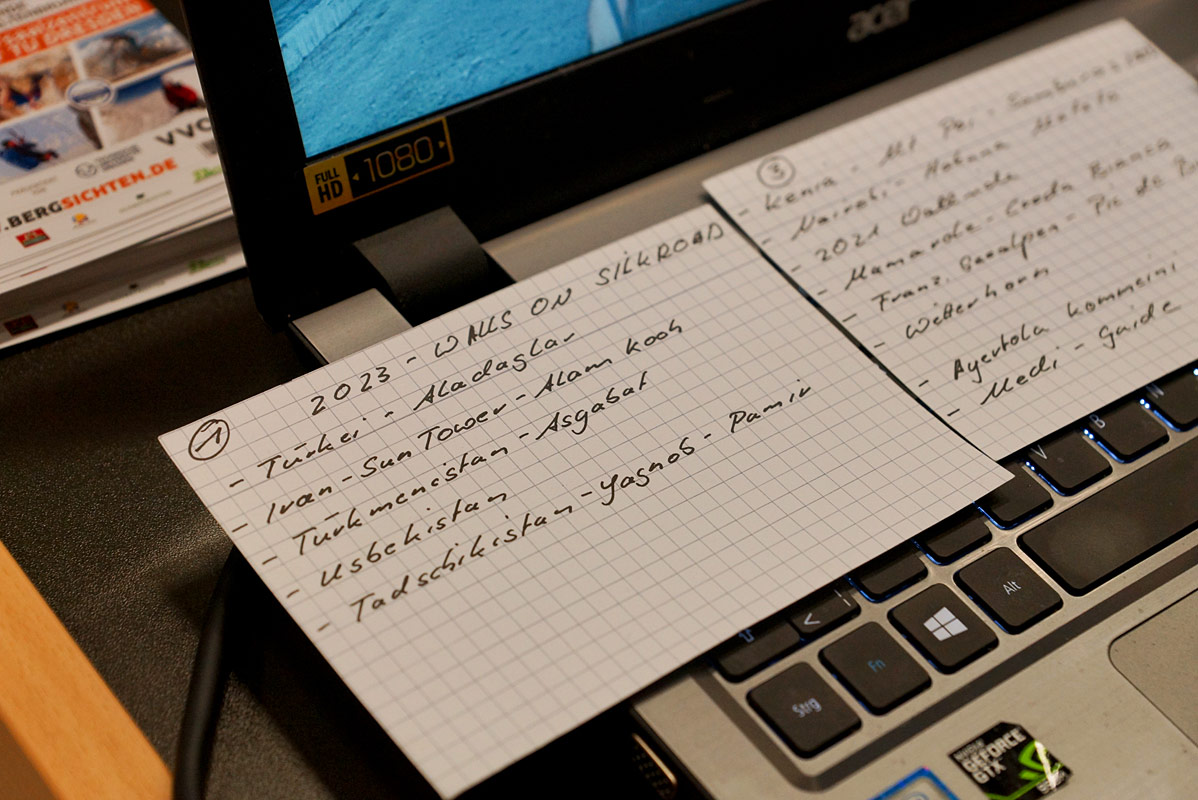 TU DRESDEN
.BERGSICHTEN.DE
acer
FULL HD 1080
1
2023 - WALLS ON SILKROAD
- Türkei - Aladaglar
- Iran - Sun Tower - Alam kooh
- Türkmenistan - Asgabat
- Usbekistan
- Tadschikistan - Yagnob - Pamir
3
- Kenia - Mt
- Nairobi - Hakuna Matata
- 2021 Wallride
- Marmarole - Croda Bianca
- Franz. Seealpen - Pic de
- Wetterhorn
- Ayertola kommsini
- Medi - Guide
V
B
N
<
Alt
Fn
Strg
NVIDIA
GEFORCE
GTX